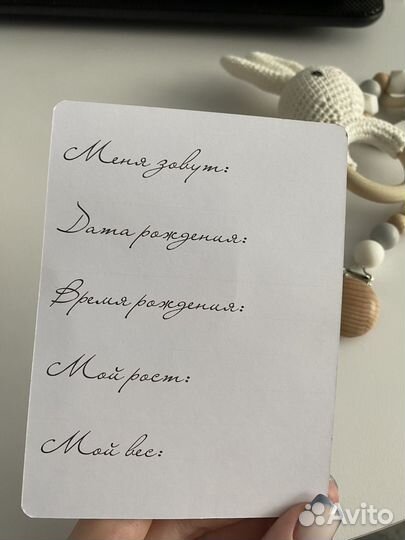 Меня зовут:
Дата рождения:
Время рождения:
Мой рост:
Мой вес:
Avito